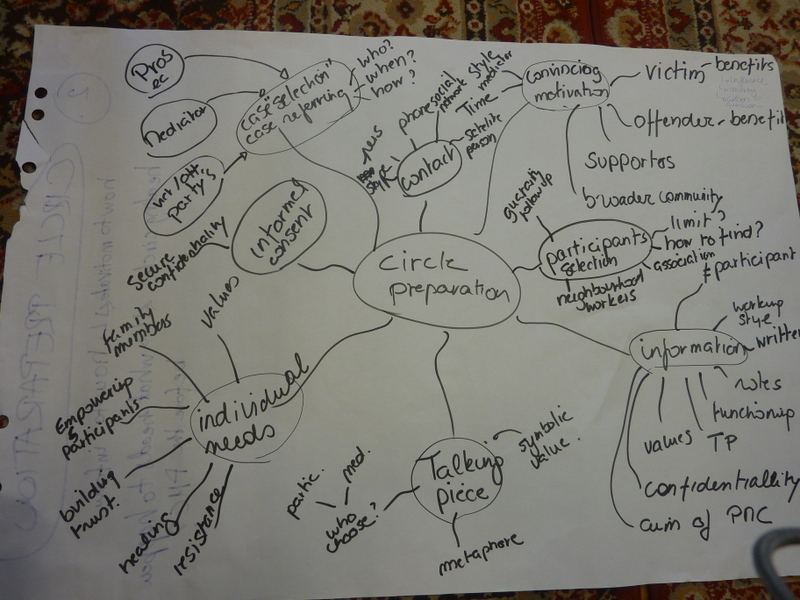 Pros
ec
mediator
party's
case "selection"
case referring
who?
when?
how?
informed
consent
secure
confidentiality
contact
phone
social
network
style
mediator
Time
satelite
person
convincing
motivation
victim - benefits
offender - benefit
supporters
broader community
circle
preparation
participants
selection
limit?
how to find?
association
neighbourhood
workers
# participant
information
written
values
TP
confidentiallity
aim of PMC
individual
needs
values
family
members
Empowering
participants
building
trust
resistance
Talking
piece
symbolic
value.
who
choose?
partic.
med.
metaphore
CIRCLE PREPARATION